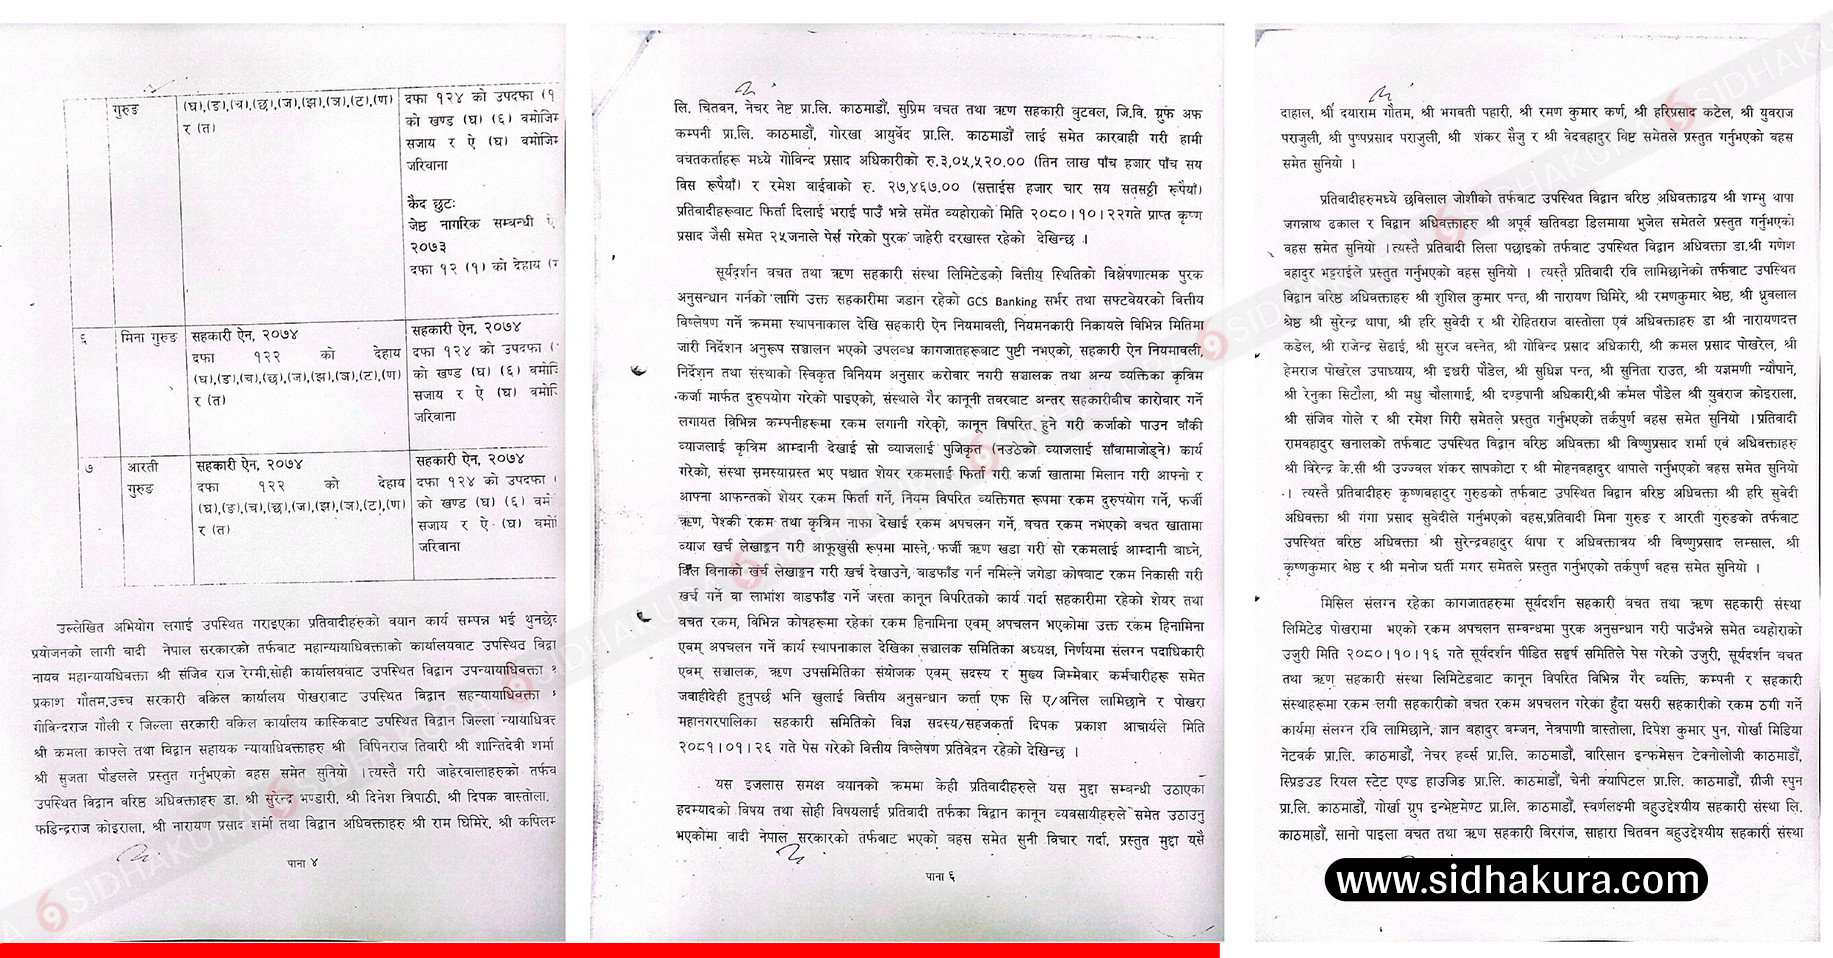 गुरुङ
(घ),(ङ),(च),(छ),(ज),(झ),(ञ),(ट),(ण)
र (त)
दफा १२४ को उपदफा (१
को खण्ड (घ) (६) वमोजिम
सजाय र ऐ (घ) वमोजिम
जरिवाना
कैद छुटः
जेष्ठ नागरिक सम्बन्धी ऐ
२०७३
दफा १२ (१) को देहाय
६
मिना गुरुङ
सहकारी ऐन, २०७४
दफा १२२ को देहाय
(घ),(ङ),(च),(छ),(ज),(झ),(ञ),(ट),(ण)
र (त)
सहकारी ऐन, २०७४
दफा १२४ को उपदफा (
को खण्ड (घ) (६) वमोजि
सजाय र ऐ (घ) वमोजि
जरिवाना
७
आरती
गुरुङ
सहकारी ऐन, २०७४
दफा १२२ को देहाय
(घ),(ङ),(च),(छ),(ज),(झ),(ञ),(ट),(ण)
र (त)
सहकारी ऐन, २०७४
दफा १२४ को उपदफा
को खण्ड (घ) (६) वमो
सजाय र ऐ (घ) वमोि
जरिवाना
उल्लेखित अभियोग लगाई उपस्थित गराइएका प्रतिवादीहरुको वयान कार्य सम्पन्न भई थुनछेक
प्रयोजनको लागी वादी नेपाल सरकारको तर्फवाट महान्यायाधिवक्ताको कार्यालयवाट उपस्थित विद्वा
नायव महान्यायधिवक्ता श्री संजिव राज रेग्मी,सोही कार्यालयवाट उपस्थित विद्वान उपन्यायाधिवक्ता श्
प्रकाश गौतम,उच्च सरकारी वकिल कार्यालय पोखरावाट उपस्थित विद्वान सहन्यायाधिवक्ता श्
गोविन्दराज गौली र जिल्ला सरकारी वकिल कार्यालय कास्किवाट उपस्थित विद्वान जिल्ला न्यायाधिवक्त
श्री कमला काफ्ले तथा विद्वान सहायक न्यायाधिवक्ताहरु श्री विपिनराज तिवारी श्री शान्तिदेवी शर्मा
श्री सुजता पौडलले प्रस्तुत गर्नुभएको वहस समेत सुनियो ।त्यस्तै गरी जाहेरवालाहरुको तर्फव
उपस्थित विद्वान वरिष्ठ अधिवक्ताहरु डा. श्री सुरेन्द्र भण्डारी, श्री दिनेश त्रिपाठी, श्री दिपक वास्तोला,
फडिन्द्रराज कोइराला, श्री नारायण प्रसाद शर्मा तथा विद्वान अधिवक्ताहरु श्री राम घिमिरे, श्री कपिलम
पाना ४
लि. चितवन, नेचर नेष्ट प्रा.लि. काठमाडौं, सुप्रिम वचत तथा ऋण सहकारी वुटवल, जि.वि. ग्रुफ अफ
कम्पनी प्रा.लि. काठमाडौं, गोरखा आयुर्वेद प्रा.लि. काठमाडौं लाई समेत कारवाही गरी हामी
वचतकर्ताहरू मध्ये गोविन्द प्रसाद अधिकारीको रु.३,०५,५२०.०० (तिन लाख पाँच हजार पाँच सय
विस रूपैयाँ) र रमेश वाईवाको रु. २७,४६७.०० (सत्ताईस हजार चार सय सतसट्ठी रूपैयाँ)
प्रतिवादीहरूवाट फिर्ता दिलाई भराई पाउँ भन्ने समेत व्यहोराको मिति २०८०।१०।२२गते प्राप्त कृष्ण
प्रसाद जैसी समेत २५जनाले पेस गरेको पुरक जाहेरी दरखास्त रहेको देखिन्छ ।
सूर्यदर्शन वचत तथा ऋण सहकारी संस्था लिमिटेडको वित्तीय स्थितिको विश्लेषणात्मक पुरक
अनुसन्धान गर्नको लागि उक्त सहकारीमा जडान रहेको GCS Banking सर्भर तथा सफ्टवेयरको वित्तीय
विण्लेषण गर्ने क्रममा स्थापनाकाल देखि सहकारी ऐन नियमावली, नियमनकारी निकायले विभिन्न मितिमा
जारी निर्देशन अनुरूप सञ्चालन भएको उपलव्ध कागजातहरूबाट पुष्टी नभएको, सहकारी ऐन नियमावली,
निर्देशन तथा संस्थाको स्विकृत विनियम अनुसार करोवार नगरी सञ्चालक तथा अन्य व्यक्तिका कृत्रिम
कर्जा मार्फत दुरुपयोग गरेको पाइएको, संस्थाले गैर कानूनी तवरबाट अन्तर सहकारीबीच कारोवार गर्ने
लगायत विभिन्न कम्पनीहरूमा रकम लगानी गरेको, कानून विपरित हुने गरी कर्जाको पाउन बाँकी
व्याजलाई कृत्रिम आम्दानी देखाई सो व्याजलाई पुजिकृत (नउठेको व्याजलाई साँवामाजोड्ने) कार्य
गरेको, संस्था समस्याग्रस्त भए पश्चात शेयर रकमलाई फिर्ता गरी कर्जा खातामा मिलान गरी आफ्नो र
आफ्ना आफन्तको शेयर रकम फिर्ता गर्ने, नियम विपरित व्यक्तिगत रूपमा रकम दुरुपयोग गर्ने, फर्जी
ऋण, पेश्की रकम तथा कृत्रिम नाफा देखाई रकम अपचलन गर्ने, बचत रकम नभएको बचत खातामा
व्याज खर्च लेखाङ्कन गरी आफूखुसी रूपमा मास्ने, फर्जी ऋण खडा गरी सो रकमलाई आम्दानी बाध्ने,
विल विनाको खर्च लेखाङ्कन गरी खर्च देखाउने, बाडफाँड गर्न नमिल्ने जगेडा कोषवाट रकम निकासी गरी
खर्च गर्ने वा लाभांश बाडफाँड गर्ने जस्ता कानून विपरितको कार्य गर्दा सहकारीमा रहेको शेयर तथा
वचत रकम, विभिन्न कोषहरूमा रहेको रकम हिनामिना एवम् अपचलन भएकोमा उक्त रकम हिनामिना
एवम् अपचलन गर्ने कार्य स्थापनाकाल देखिका सञ्चालक समितिका अध्यक्ष, निर्णयमा संलग्न पदाधिकारी
एवम् सञ्चालक, ऋण उपसमितिका संयोजक एवम् सदस्य र मुख्य जिम्मेवार कर्मचारीहरू समेत
जवाहीदेही हुनुपर्छ भनि खुलाई वित्तीय अनुसन्धान कर्ता एफ सि ए/अनिल लामिछाने र पोखरा
महानगरपालिका सहकारी समितिको विज्ञ सदस्य/सहजकर्ता दिपक प्रकाश आचार्यले मिति
२०८१।०१।२६ गते पेस गरेको वित्तीय विण्लेषण प्रतिवेदन रहेको देखिन्छ ।
यस इजलास समक्ष वयानको क्रममा केही प्रतिवादीहरुले यस मुद्दा सम्बन्धी उठाएका
हदम्यादको विषय तथा सोही विषयलाई प्रतिवादी तर्फका विद्वान कानून व्यवसायीहरुले समेत उठाउनु
भएकोमा वादी नेपाल सरकारको तर्फवाट भएको बहस समेत सुनी विचार गर्दा, प्रस्तुत मुद्दा यसै
पाना ६
दाहाल, श्री दयाराम गौतम, श्री भगवती पहारी, श्री रमण कुमार कर्ण, श्री हरिप्रसाद कटेल, श्री युवराज
पराजुली, श्री पुष्पप्रसाद पराजुली, श्री शंकर सैजु र श्री वेदवहादुर विष्ट समेतले प्रस्तुत गर्नुभएको वहस
समेत सुनियो ।
प्रतिवादीहरुमध्ये छविलाल जोशीको तर्फवाट उपस्थित विद्वान वरिष्ठ अधिवक्ताद्वय श्री शम्भु थापा
जगन्नाथ ढकाल र विद्वान अधिवक्ताहरु श्री अपूर्व खतिवडा डिलमाया भुजेल समेतले प्रस्तुत गर्नुभएको
वहस समेत सुनियो ।त्यस्तै प्रतिवादी लिला पछाइको तर्फवाट उपस्थित विद्वान अधिवक्ता डा.श्री गणेश
वहादुर भट्टराईले प्रस्तुत गर्नुभएको वहस सुनियो । त्यस्तै प्रतिवादी रवि लामिछानेको तर्फवाट उपस्थित
विद्वान वरिष्ठ अधिवक्ताहरु श्री शुशिल कुमार पन्त, श्री नारायण घिमिरे, श्री रमणकुमार श्रेष्ठ, श्री ध्रुवलाल
श्रेष्ठ श्री सुरेन्द्र थापा, श्री हरि सुवेदी र श्री रोहितराज वास्तोला एवं अधिवक्ताहरु डा श्री नारायणदत्त
कडेल, श्री राजेन्द्र सेढाई, श्री सुरज वस्नेत, श्री गोविन्द प्रसाद अधिकारी, श्री कमल प्रसाद पोखरेल, श्री
हेमराज पोखरेल उपाध्याय, श्री इश्वरी पौडेल, श्री सुधिज्ञ पन्त, श्री सुनिता राउत, श्री यज्ञमणी न्यौपाने,
श्री रेनुका सिटौला, श्री मधु चौलागाई, श्री दण्डपानी अधिकारी,श्री कमल पौडेल श्री युवराज कोइराला,
श्री संजिव गोले र श्री रमेश गिरी समेतले प्रस्तुत गर्नुभएको तर्कपुर्ण वहस समेत सुनियो ।प्रतिवादी
रामवहादुर खनालको तर्फवाट उपस्थित विद्वान वरिष्ठ अधिवक्ता श्री विष्णुप्रसाद शर्मा एवं अधिवक्ताहरु
श्री विरेन्द्र के.सी श्री उज्ज्वल शंकर सापकोटा र श्री मोहनवहादुर थापाले गर्नुभएको वहस समेत सुनियो
। त्यस्तै प्रतिवादीहरु कृष्णवहादुर गुरुङको तर्फवाट उपस्थित विद्वान वरिष्ठ अधिवक्ता श्री हरि सुवेदी
अधिवक्ता श्री गंगा प्रसाद सुवेदीले गर्नुभएको वहस,प्रतिवादी मिना गुरुङ र आरती गुरुङको तर्फवाट
उपस्थित वरिष्ठ अधिवक्ता श्री सुरेन्द्रवहादुर थापा र अधिवक्तात्रय श्री विष्णुप्रसाद लम्साल, श्री
कृष्णकुमार श्रेष्ठ र श्री मनोज घर्ती मगर समेतले प्रस्तुत गर्नुभएको तर्कपुर्ण वहस समेत सुनियो ।
मिसिल संलग्न रहेका कागजातहरुमा सूर्यदर्शन सहकारी वचत तथा ऋण सहकारी संस्था
लिमिटेड पोखरामा भएको रकम अपचलन सम्वन्धमा पुरक अनुसन्धान गरी पाउँभन्ने समेत व्यहोराको
उजुरी मिति २०८०।१०।१६ गते सूर्यदर्शन पीडित सङ्घर्ष समितिले पेस गरेको उजुरी, सूर्यदर्शन वचत
तथा ऋण सहकारी संस्था लिमिटेडबाट कानून विपरित विभिन्न गैर व्यक्ति, कम्पनी र सहकारी
संस्थाहरूमा रकम लगी सहकारीको बचत रकम अपचलन गरेका हुँदा यसरी सहकारीको रकम ठगी गर्ने
कार्यमा संलग्न रवि लामिछाने, ज्ञान बहादुर बम्जन, नेत्रपाणी वास्तोला, दिपेश कुमार पुन, गोर्खा मिडिया
नेटवर्क प्रा.लि. काठमाडौं, नेचर हर्व्स प्रा.लि. काठमाडौं, वारिसान इन्फमेसन टेक्नोलोजी काठमाडौं,
स्प्रिङउड रियल स्टेट एण्ड हाउजिङ प्रा.लि. काठमाडौं, चेनी क्यापिटल प्रा.लि. काठमाडौं, ग्रीजी स्पुन
प्रा.लि. काठमाडौं, गोर्खा ग्रुप इन्भेष्टमेण्ट प्रा.लि. काठमाडौं, स्वर्णलक्ष्मी वहुउद्देश्यीय सहकारी संस्था लि.
काठमाडौं, सानो पाइला बचत तथा ऋण सहकारी बिरगंज, साहारा चितवन बहुउद्देश्यीय सहकारी संस्था
www.sidhakura.com
SIDHAKURA